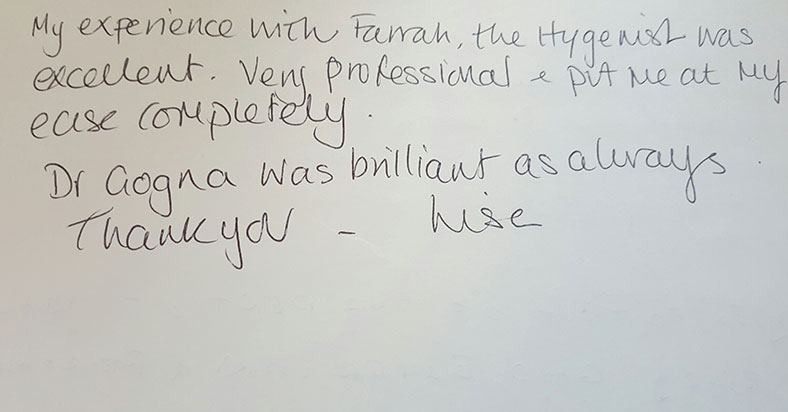 My experience with Farrah, the Hygenist was
excellent. Very professional & put me at my
ease completely.
Dr Gogna was brilliant as always.
Thank you - Lise